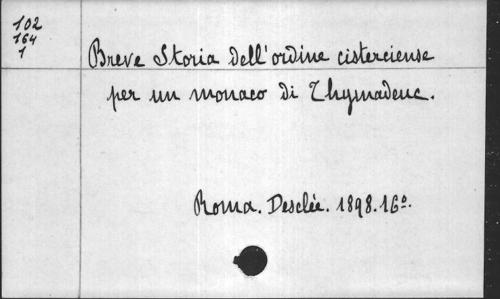 102
164
1
Breve Storia dell'ordine cisterciense
per un monaco di Thymadeuc.
Roma. Desclée. 1898. 16º.